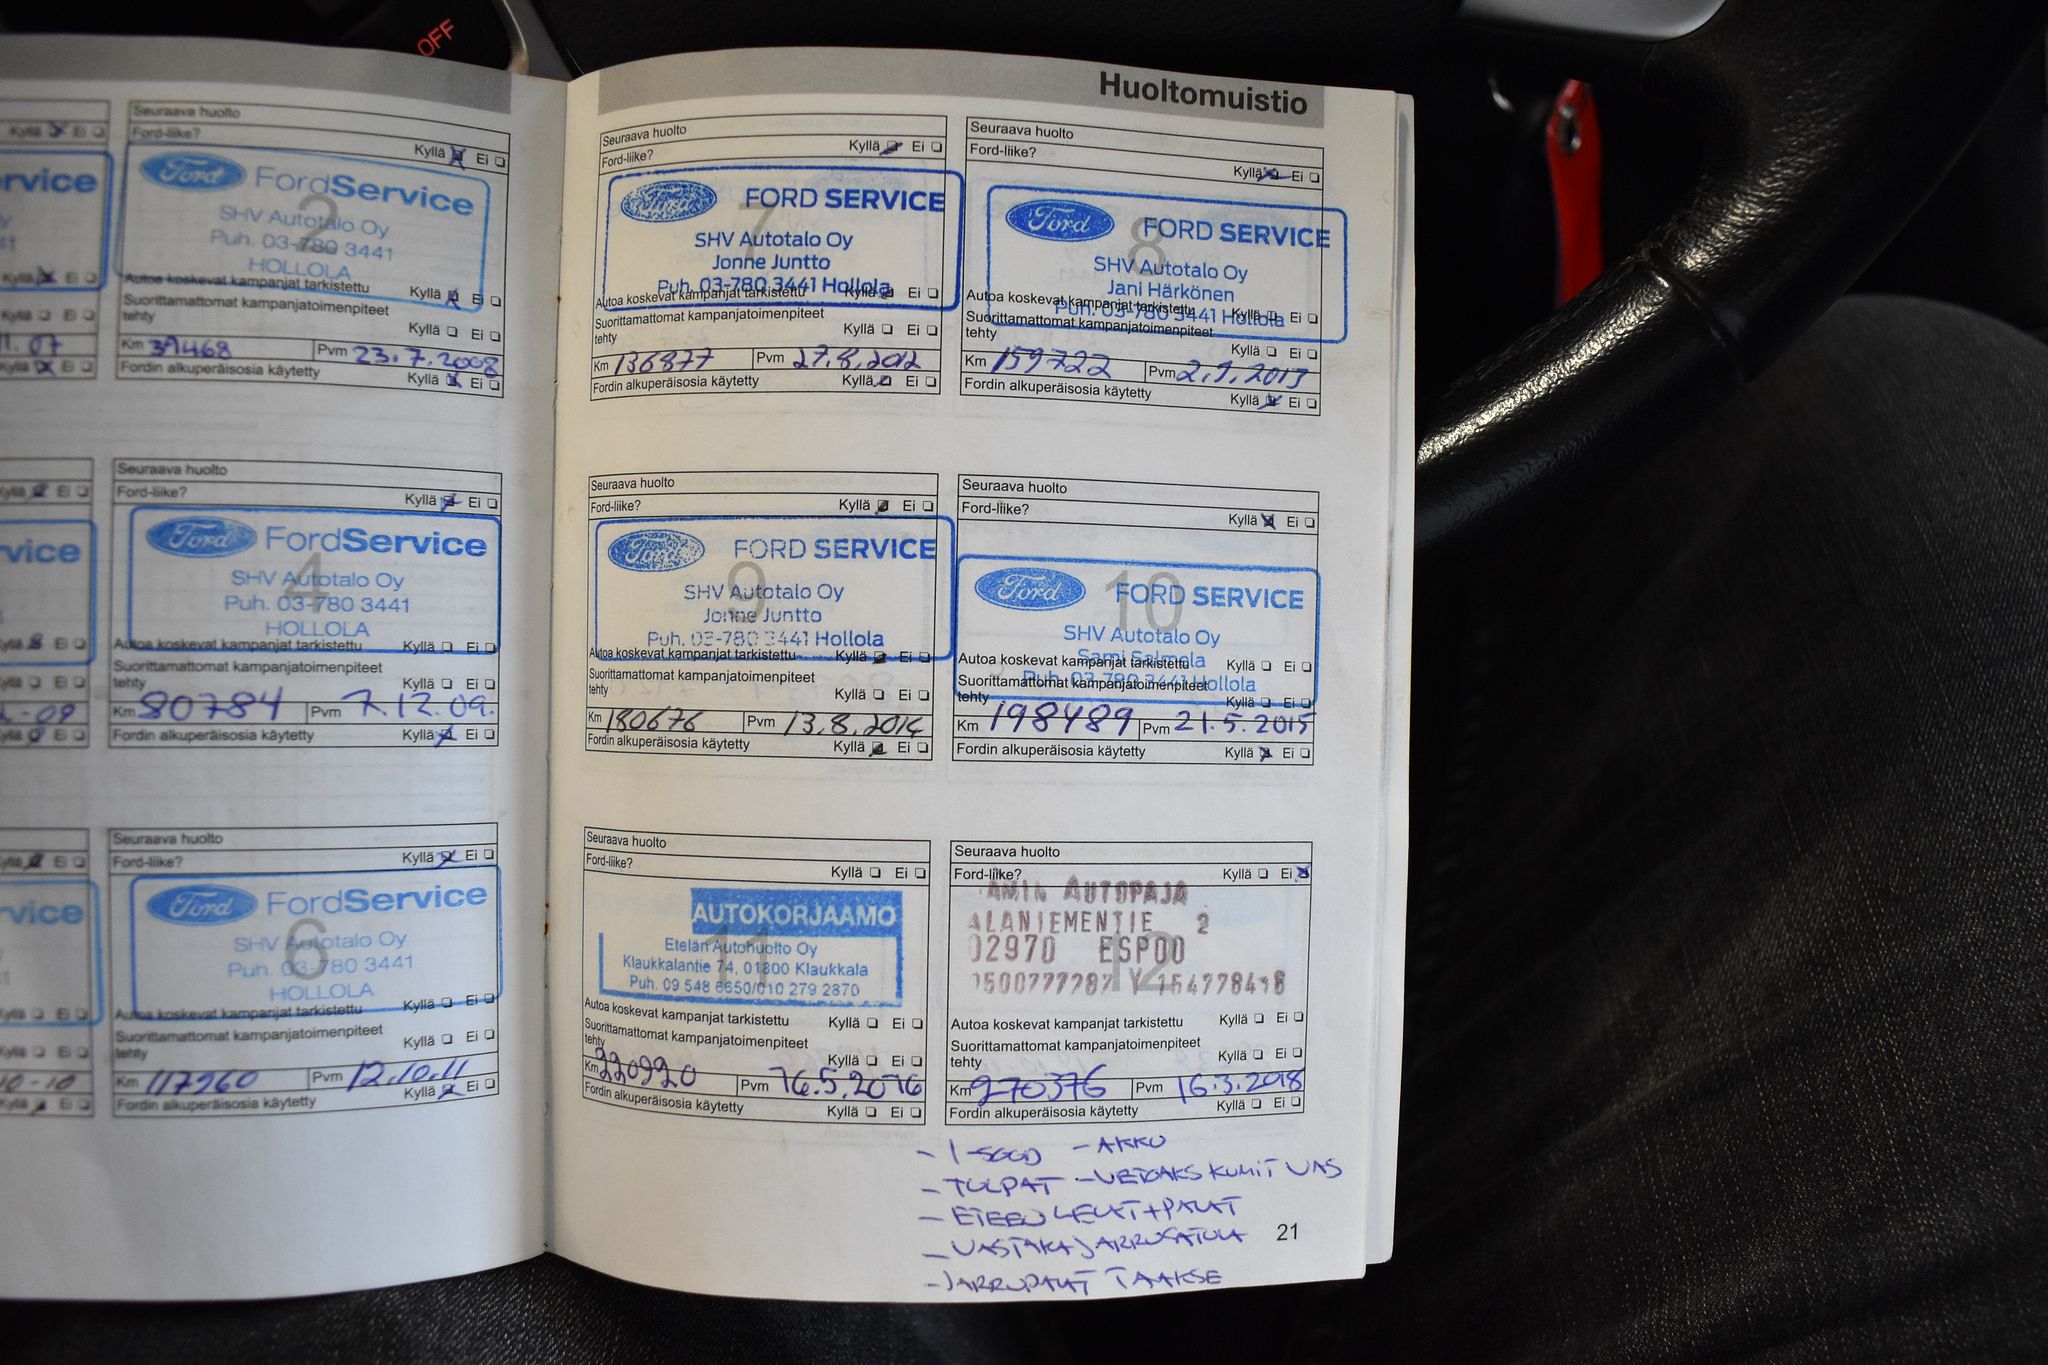 OFF
Kyllä Ei
rvice
Kyllä Ei
11.07
Seuraava huolto
Ford-liike?
Kyllä Ei
Ford FordService
2
SHV Autotalo Oy
Puh. 03-780 3441
HOLLOLA
Autoa koskevat kampanjat tarkistettu Kyllä Ei
Suorittamattomat kampanjatoimenpiteet
tehty Kyllä Ei
Km 39468 Pvm 23.7.2008
Fordin alkuperäisosia käytetty Kyllä Ei
Kyllä Ei
vice
-09
Seuraava huolto
Ford-liike?
Kyllä Ei
Ford FordService
4
SHV Autotalo Oy
Puh. 03-780 3441
HOLLOLA
Autoa koskevat kampanjat tarkistettu Kyllä Ei
Suorittamattomat kampanjatoimenpiteet
tehty Kyllä Ei
Km 80784 Pvm 7.12.09.
Fordin alkuperäisosia käytetty Kyllä Ei
Kyllä Ei
vice
10-10
Seuraava huolto
Ford-liike?
Kyllä Ei
Ford FordService
6
SHV Autotalo Oy
Puh. 03-780 3441
HOLLOLA
Autoa koskevat kampanjat tarkistettu Kyllä Ei
Suorittamattomat kampanjatoimenpiteet
tehty Kyllä Ei
Km 117260 Pvm 12.10.11
Fordin alkuperäisosia käytetty Kyllä Ei
Huoltomuistio
Seuraava huolto
Ford-liike? Kyllä Ei
Ford FORD SERVICE
7
SHV Autotalo Oy
Jonne Juntto
Puh. 03-780 3441 Hollola
Autoa koskevat kampanjat tarkistettu Kyllä Ei
Suorittamattomat kampanjatoimenpiteet
tehty Kyllä Ei
Km 136877 Pvm 27.8.2012
Fordin alkuperäisosia käytetty Kyllä Ei
Seuraava huolto
Ford-liike?
Kyllä Ei
Ford FORD SERVICE
8
SHV Autotalo Oy
Jani Härkönen
Puh. 03-780 3441 Hollola
Autoa koskevat kampanjat tarkistettu Kyllä Ei
Suorittamattomat kampanjatoimenpiteet
tehty Kyllä Ei
Km 159722 Pvm 2.9.2013
Fordin alkuperäisosia käytetty Kyllä Ei
Seuraava huolto
Ford-liike? Kyllä Ei
Ford FORD SERVICE
9
SHV Autotalo Oy
Jonne Juntto
Puh. 03-780 3441 Hollola
Autoa koskevat kampanjat tarkistettu Kyllä Ei
Suorittamattomat kampanjatoimenpiteet
tehty Kyllä Ei
Km 180676 Pvm 13.8.2014
Fordin alkuperäisosia käytetty Kyllä Ei
Seuraava huolto
Ford-liike?
Kyllä Ei
Ford FORD SERVICE
10
SHV Autotalo Oy
Sami Salmela
Puh. 03 780 3441 Hollola
Autoa koskevat kampanjat tarkistettu Kyllä Ei
Suorittamattomat kampanjatoimenpiteet
tehty Kyllä Ei
Km 198489 Pvm 21.5.2015
Fordin alkuperäisosia käytetty Kyllä Ei
Seuraava huolto
Ford-liike?
Kyllä Ei
AUTOKORJAAMO
11
Etelän Autohuolto Oy
Klaukkalantie 74, 01800 Klaukkala
Puh. 09 548 6650/010 279 2370
Autoa koskevat kampanjat tarkistettu Kyllä Ei
Suorittamattomat kampanjatoimenpiteet
tehty Kyllä Ei
Km 220920 Pvm 16.5.2016
Fordin alkuperäisosia käytetty Kyllä Ei
Seuraava huolto
Ford-liike? Kyllä Ei
AUTOPAJA
ALANIEMENTIE 2
02970 ESPOO
12
0500777287 Y
Autoa koskevat kampanjat tarkistettu Kyllä Ei
Suorittamattomat kampanjatoimenpiteet
tehty Kyllä Ei
Km 270376 Pvm 16.3.2018
Fordin alkuperäisosia käytetty Kyllä Ei
- AKKU
- TULPAT - VETOAKS KUMIT VAS
- ETEEN LEVYT + PALAT
- JARRUPALAT TAAKSE
21